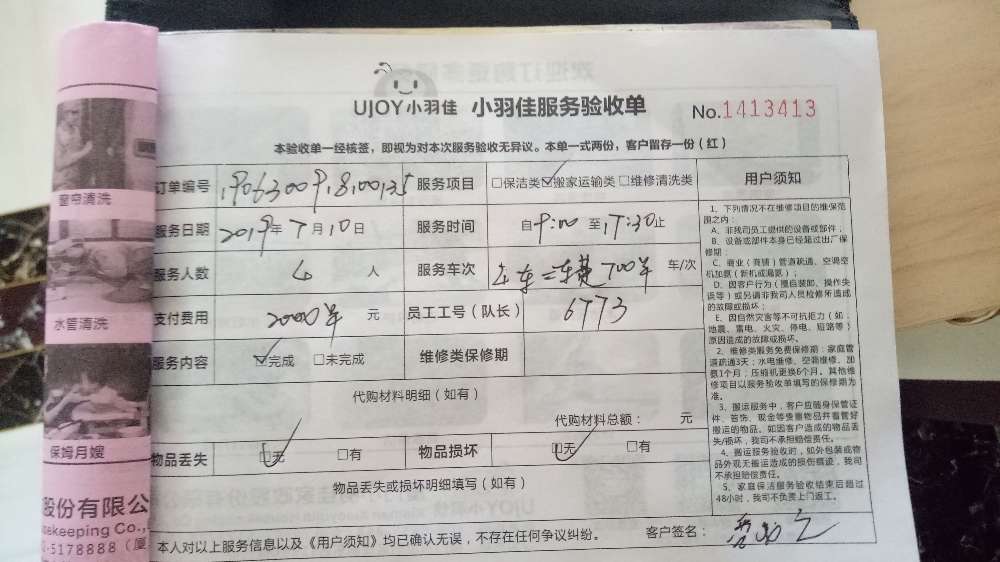 UJOY小羽佳 小羽佳服务验收单 No.1413413
本验收单一经核签，即视为对本次服务验收无异议。本单一式两份，客户留存一份（红）
订单编号 服务项目 □保洁类 ☑搬家运输类 □维修清洗类
服务日期 2019年7月10日 服务时间 自9:00至17:30止
服务人数 人 服务车次 车/次
支付费用 元 员工工号（队长） 6773
服务内容 ☑完成 □未完成 维修类保修期
代购材料明细（如有）
代购材料总额： 元
物品丢失 ☑无 □有 物品损坏 ☑无 □有
物品丢失或损坏明细填写（如有）
本人对以上服务信息以及《用户须知》均已确认无误，不存在任何争议纠纷。 客户签名：
用户须知
1、下列情况不在维修项目的维保范
围之内：
A、非我司员工提供的设备或部件；
B、设备或部件本身已经超过出厂保
修期；
C、商业（商铺）管道疏通、空调空
机加氨（新机或漏氨）；
D、因客户行为（擅自装卸、操作失
误等）或另请非我司人员检修所造成
的故障或损坏；
E、因自然灾害等不可抗拒力（如：
地震、雷电、火灾、停电、短路等）
原因造成的故障或损坏。
2、维修类服务免费保修期：家庭管
道疏通3天；水电维修、空调维修、加
氨1个月；压缩机更换6个月。其他维
修项目以服务验收单填写的保修期为
准。
3、搬运服务中，客户应随身保管证
件、首饰、现金等贵重物品并看管好
搬运的物品。如因客户造成的物品丢
失/损坏，我司不承担赔偿责任。
4、搬运服务验收时，如外包装或物
品外观无搬运造成的损伤痕迹，我司
不承担赔偿责任。
5、家庭保洁服务验收结束后超过
48小时，我司不负责上门返工。
窗帘清洗
水管清洗
保姆月嫂
股份有限公
sekeeping Co.,
-5178888（厦